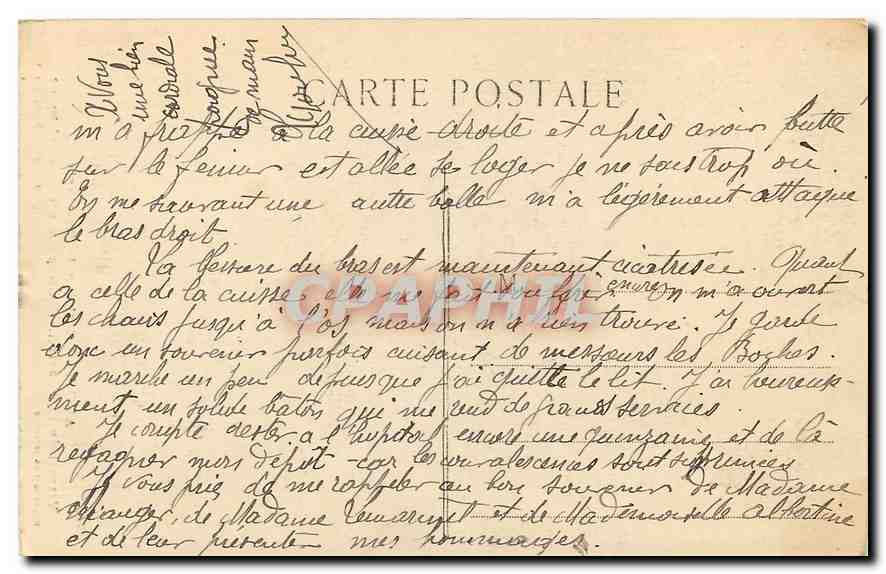 CARTE POSTALE
m'a frappé à la cuisse droite et après avoir butté
sur le fémur est allée se loger je ne sais trop où.
En me sauvant une autre balle m'a légèrement attaqué
le bras droit
La blessure du bras est maintenant cicatrisée. Quant
a celle de la cuisse elle me fait souffrir encore on m'a ouvert
les chairs jusqu'à l'os mais on n'a rien trouvé. Je garde
donc un souvenir parfois cuisant de messieurs les Boches.
Je marche un peu depuis que j'ai quitté le lit. J'ai heureuse-
ment un solide baton qui me rend de grands services.
Je compte rester a l'hopital encore une quinzaine et de là
regagner mon dépôt car les convalescences sont supprimées
Je vous prie de me rappeler au bon souvenir de Madame
de Madame et de Mademoiselle albertine
et de leur présenter mes hommages.
a Vous
une bien
cordiale
poignée
de main
CPAPHIL